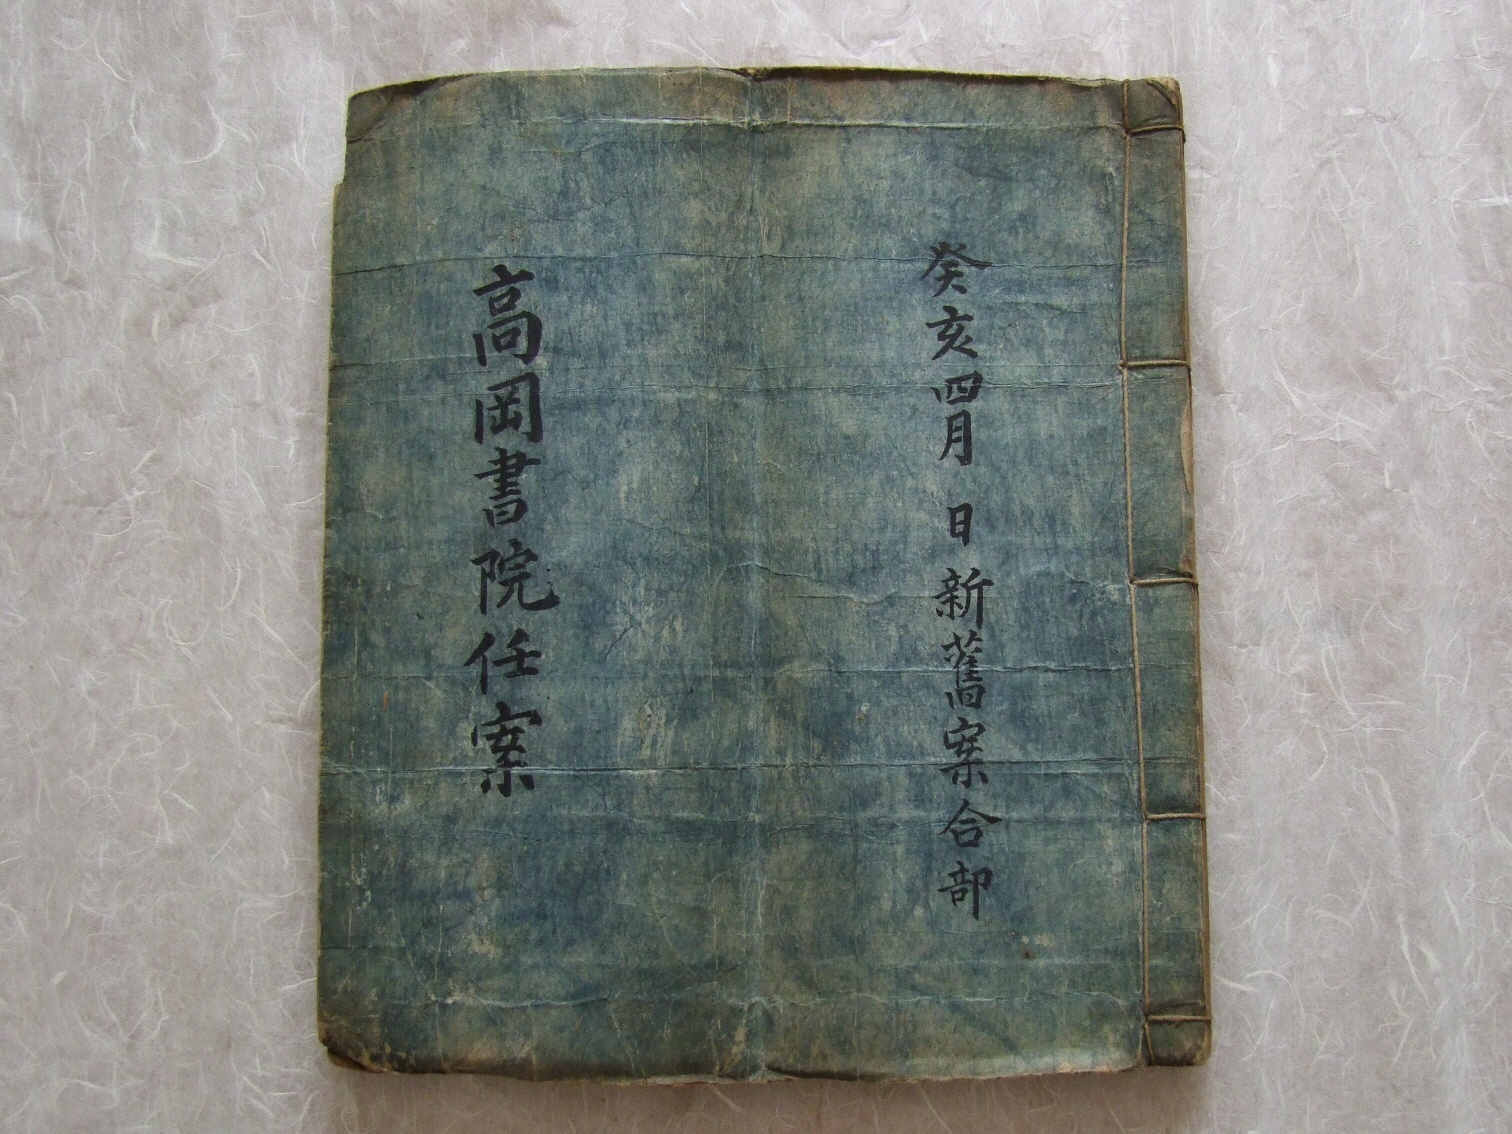 癸亥四月 日 新舊案合部
高岡書院任案